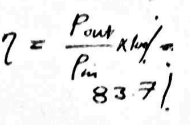 η = Pout/Pin × 100% =
83.7%